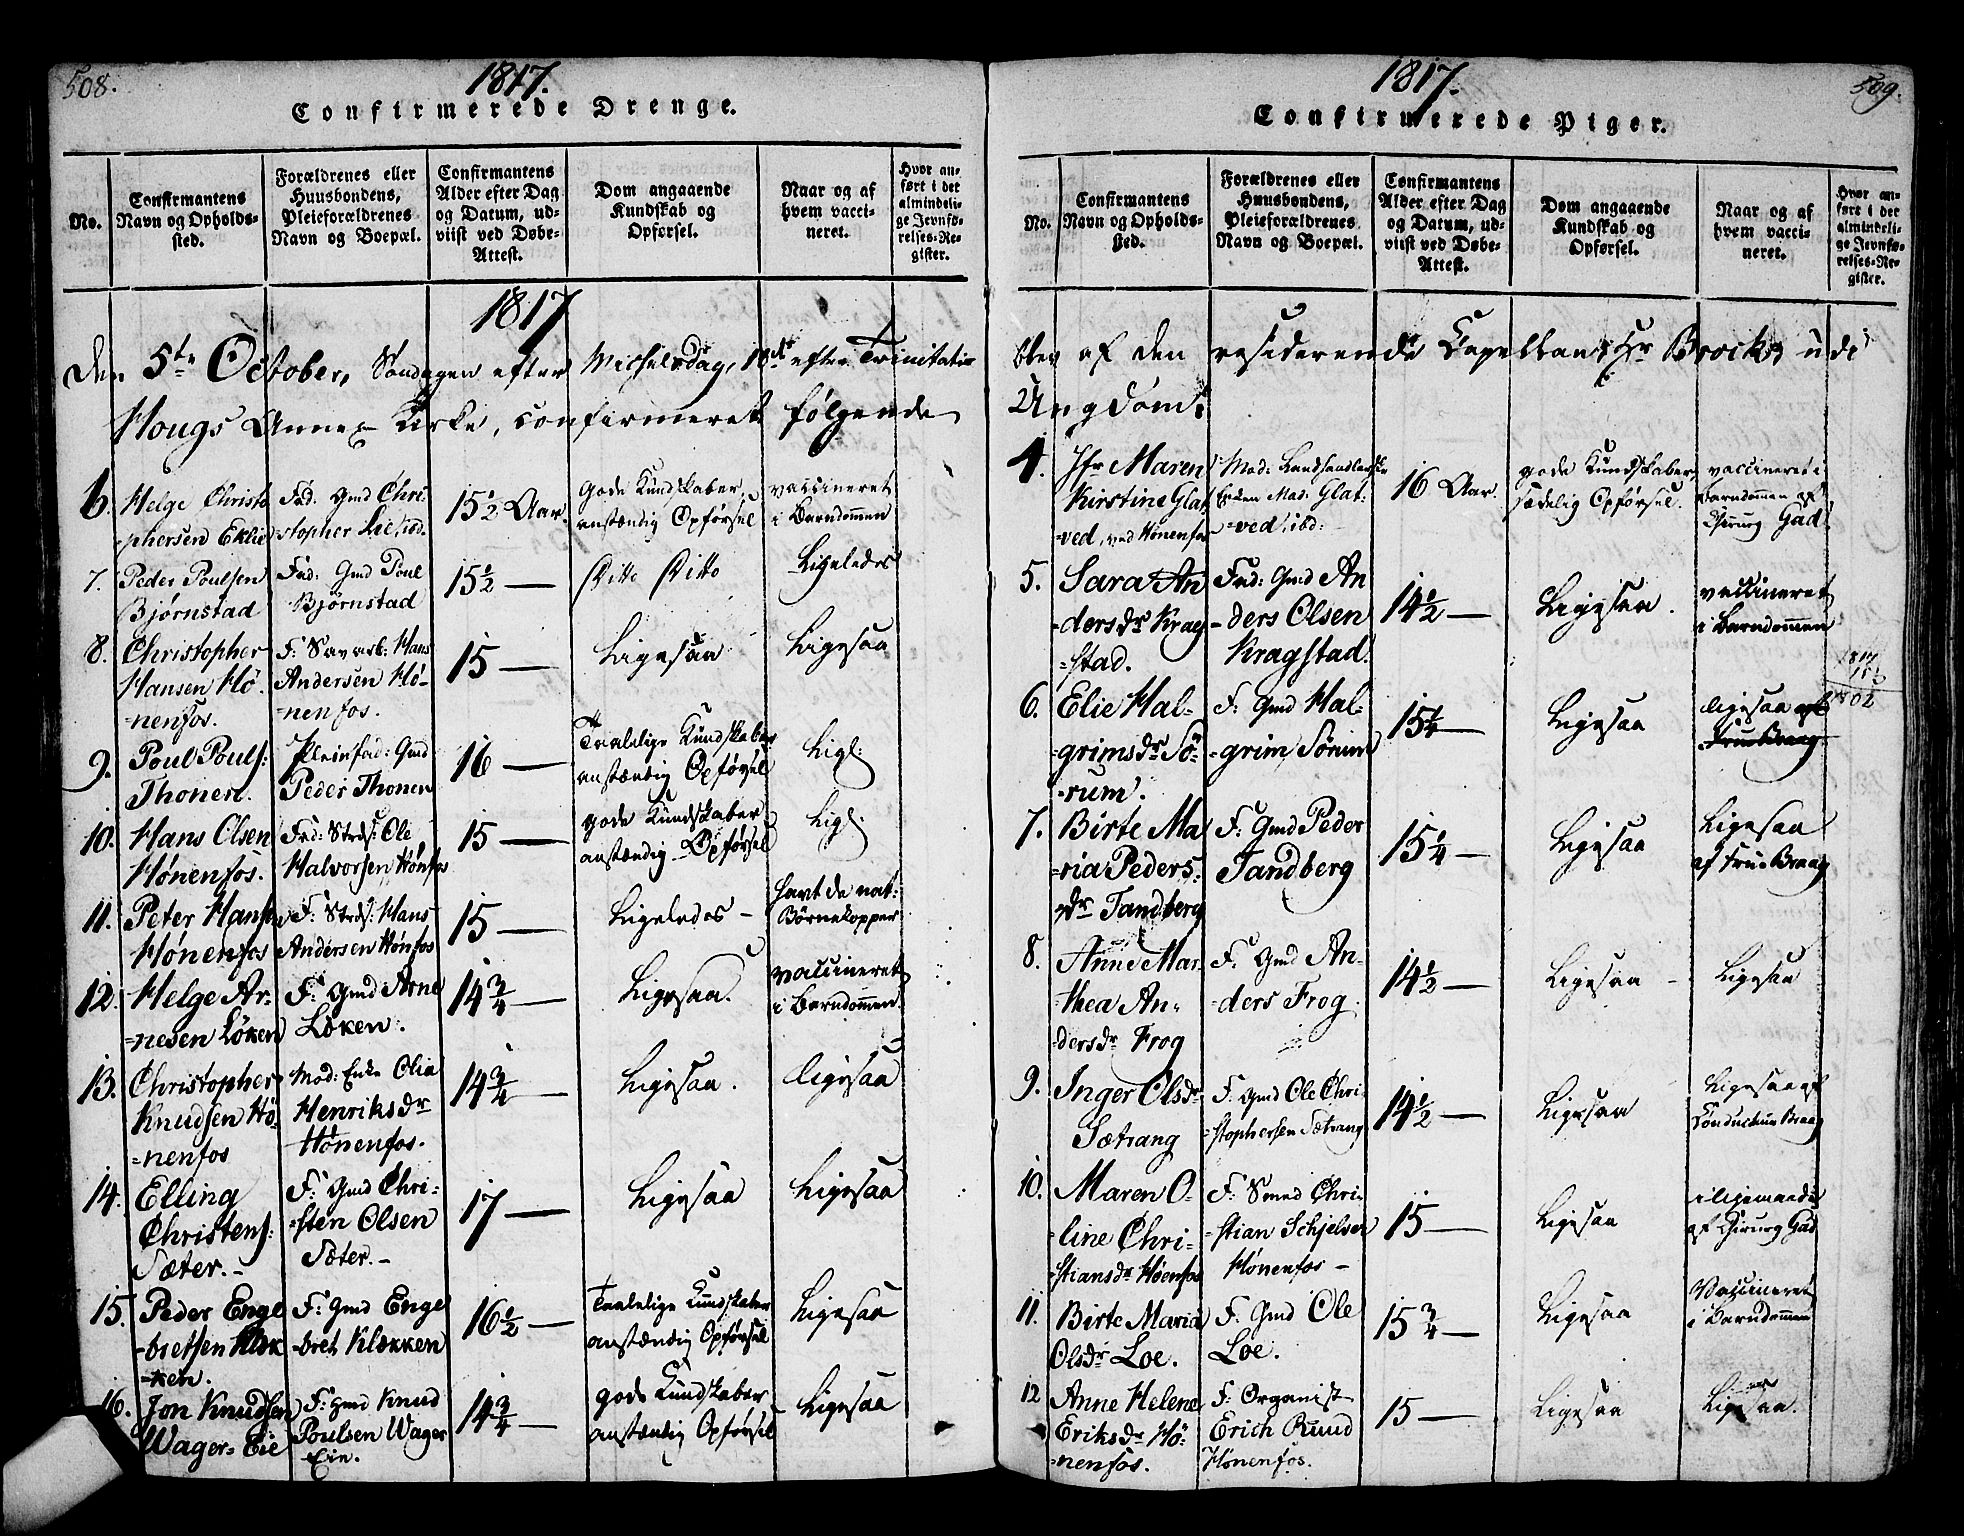 508.
1817.
Confirmerede Drenge.
No.
Confirmantens
Navn og Opholds-
sted.
Forældrenes eller
Huusbondens,
Pleieforældrenes
Navn og Boepæl.
Confirmantens
Alder efter Dag
og Datum, ud-
viist ved Døbe-
Attest.
Dom angaaende
Kundskab og
Opførsel.
Naar og af
hvem vacci-
neret.
Hvor an-
ført i det
almindeli-
ge Jevnfø-
relses-Re-
gister.
1817
Den 5te October, Søndagen efter Michelsdag, 18de efter Trinitatis
Hougs Annex Kirke, confirmeret følgende
6. Helge Christo
-phersen Eklie
Fad: Gmd Chri
-stopher Lie, ibd.
15 1/2 Aar.
gode Kundskaber,
anstændig Opførsel
vaccineret
i Barndommen
7. Peder Poulsen
Bjørnstad
Fad: Gmd Poul
Bjørnstad
15 1/2 —
Ditto Ditto
Ligeledes
8. Christopher
Hansen Hø-
=nenfos.
F: Savarb: Hans
Andersen Hø-
=nenfos.
15 —
Ligesaa
Ligesaa
9. Poul Pouls:
Thonen.
Pleiefad: Gmd
Peder Thonen
16 —
Taalelige Kundskaber
anstændig Opførsel
Ligl:
10. Hans Olsen
Hønenfos.
Fad: Strds: Ole
Halvorsen Hønfos
15 —
gode Kundskaber
anstændig Opførsel
Ligl:
11. Peter Hansen
Hønenfos
F: Strds: Hans
Andersen Hønfos
15 —
Ligeledes —
havt de nat:
Børnekopper
12. Helge Ar-
=nesen Løken
F: Gmd Arne
Løken.
14 3/4 —
Ligesaa.
vaccineret
i Barndommen.
13. Christopher
Knudsen Hø-
=nenfos
Mod: Enke Olia
Henriksdr
Hønenfos.
14 3/4 —
Ligesaa.
Ligesaa
14. Elling
Christens:
Sæter.
F: Gmd Chri-
=sten Olsen
Sæter.
17 —
Ligesaa
Ligesaa
15. Peder Enge
-bretsen Klæk
=ken.
F: Gmd Enge
-bret Klækken
16 1/2 —
Taalelige Kundskaber
anstændig Opførsel
Ligesaa
16. Jon Knudsen
Wager=Eie
F: Hmd Knud
Poulsen Wager
Eie.
14 3/4 —
gode Kundskaber
anstændig Opførsel
Ligesaa
1817.
509.
Confirmerede Piger.
No.
Confirmantens
Navn og Opholds-
sted.
Forældrenes eller
Huusbondens,
Pleieforældrenes
Navn og Boepæl.
Confirmantens
Alder efter Dag
og Datum, ud-
viist ved Døbe-
Attest.
Dom angaaende
Kundskab og
Opførsel.
Naar og af
hvem vacci-
neret.
Hvor an-
ført i det
almindeli-
ge Jevnfø-
relses-Re-
gister.
blev af den residerende Capellan Hr Brock, udi
Ungdom:
4. Jfr Maren
Kirstine Glat
=ved, ved Hønenfos
Mod: Landhandlerske
Enken Mad. Glat
=ved, ibd:
16 Aar.
gode Kundskaber,
sædelig Opførsel.
vaccineret i
Barndommen af
Chirurg Gad.
5. Sara An
=dersdr Krag
=stad.
Fad: Gmd An
-ders Olsen
Kragstad.
14 1/2 —
Ligesaa.
vaccineret
i Barndommen
6. Elie Hal-
=grimsdr Sø-
=rum.
F: Gmd Hal-
=grim Sørum
15 1/4 —
Ligesaa
ligesaa af
Frue Braag.
1817
15
1802
7. Birte Ma
=ria Peders:
=dr Tandberg
F: Gmd Peder
Tandberg
15 1/4 —
Ligesaa
Ligesaa
af Frue Braag
8. Anne Mar-
thea An-
=dersdr Frog
F: Gmd An-
=ders Frog.
14 1/2 —
Ligesaa
Ligesaa
9. Inger Olsdr
Sætrang
F: Gmd Ole Chri-
=stophersen Sætrang
14 1/2 —
Ligesaa
Ligesaa af
Conducteur Braag
10. Maren O-
line Chri-
=stiansdr Høenfos
F: Smed Chri-
=stian Schjelsen
Hønenfos —
15 —
Ligesaa
af Chirurg Gad
11. Birte Maria
Olsdr Loe.
F: Gmd Ole
Loe.
15 3/4 —
Ligesaa
Vaccineret
i Barndommen
12 Anne Helene
Eriksdr Hø-
=nenfos.
F: Organist
Erich Ruud
Hønenfos.
15 —
Ligesaa
Ligesaa.